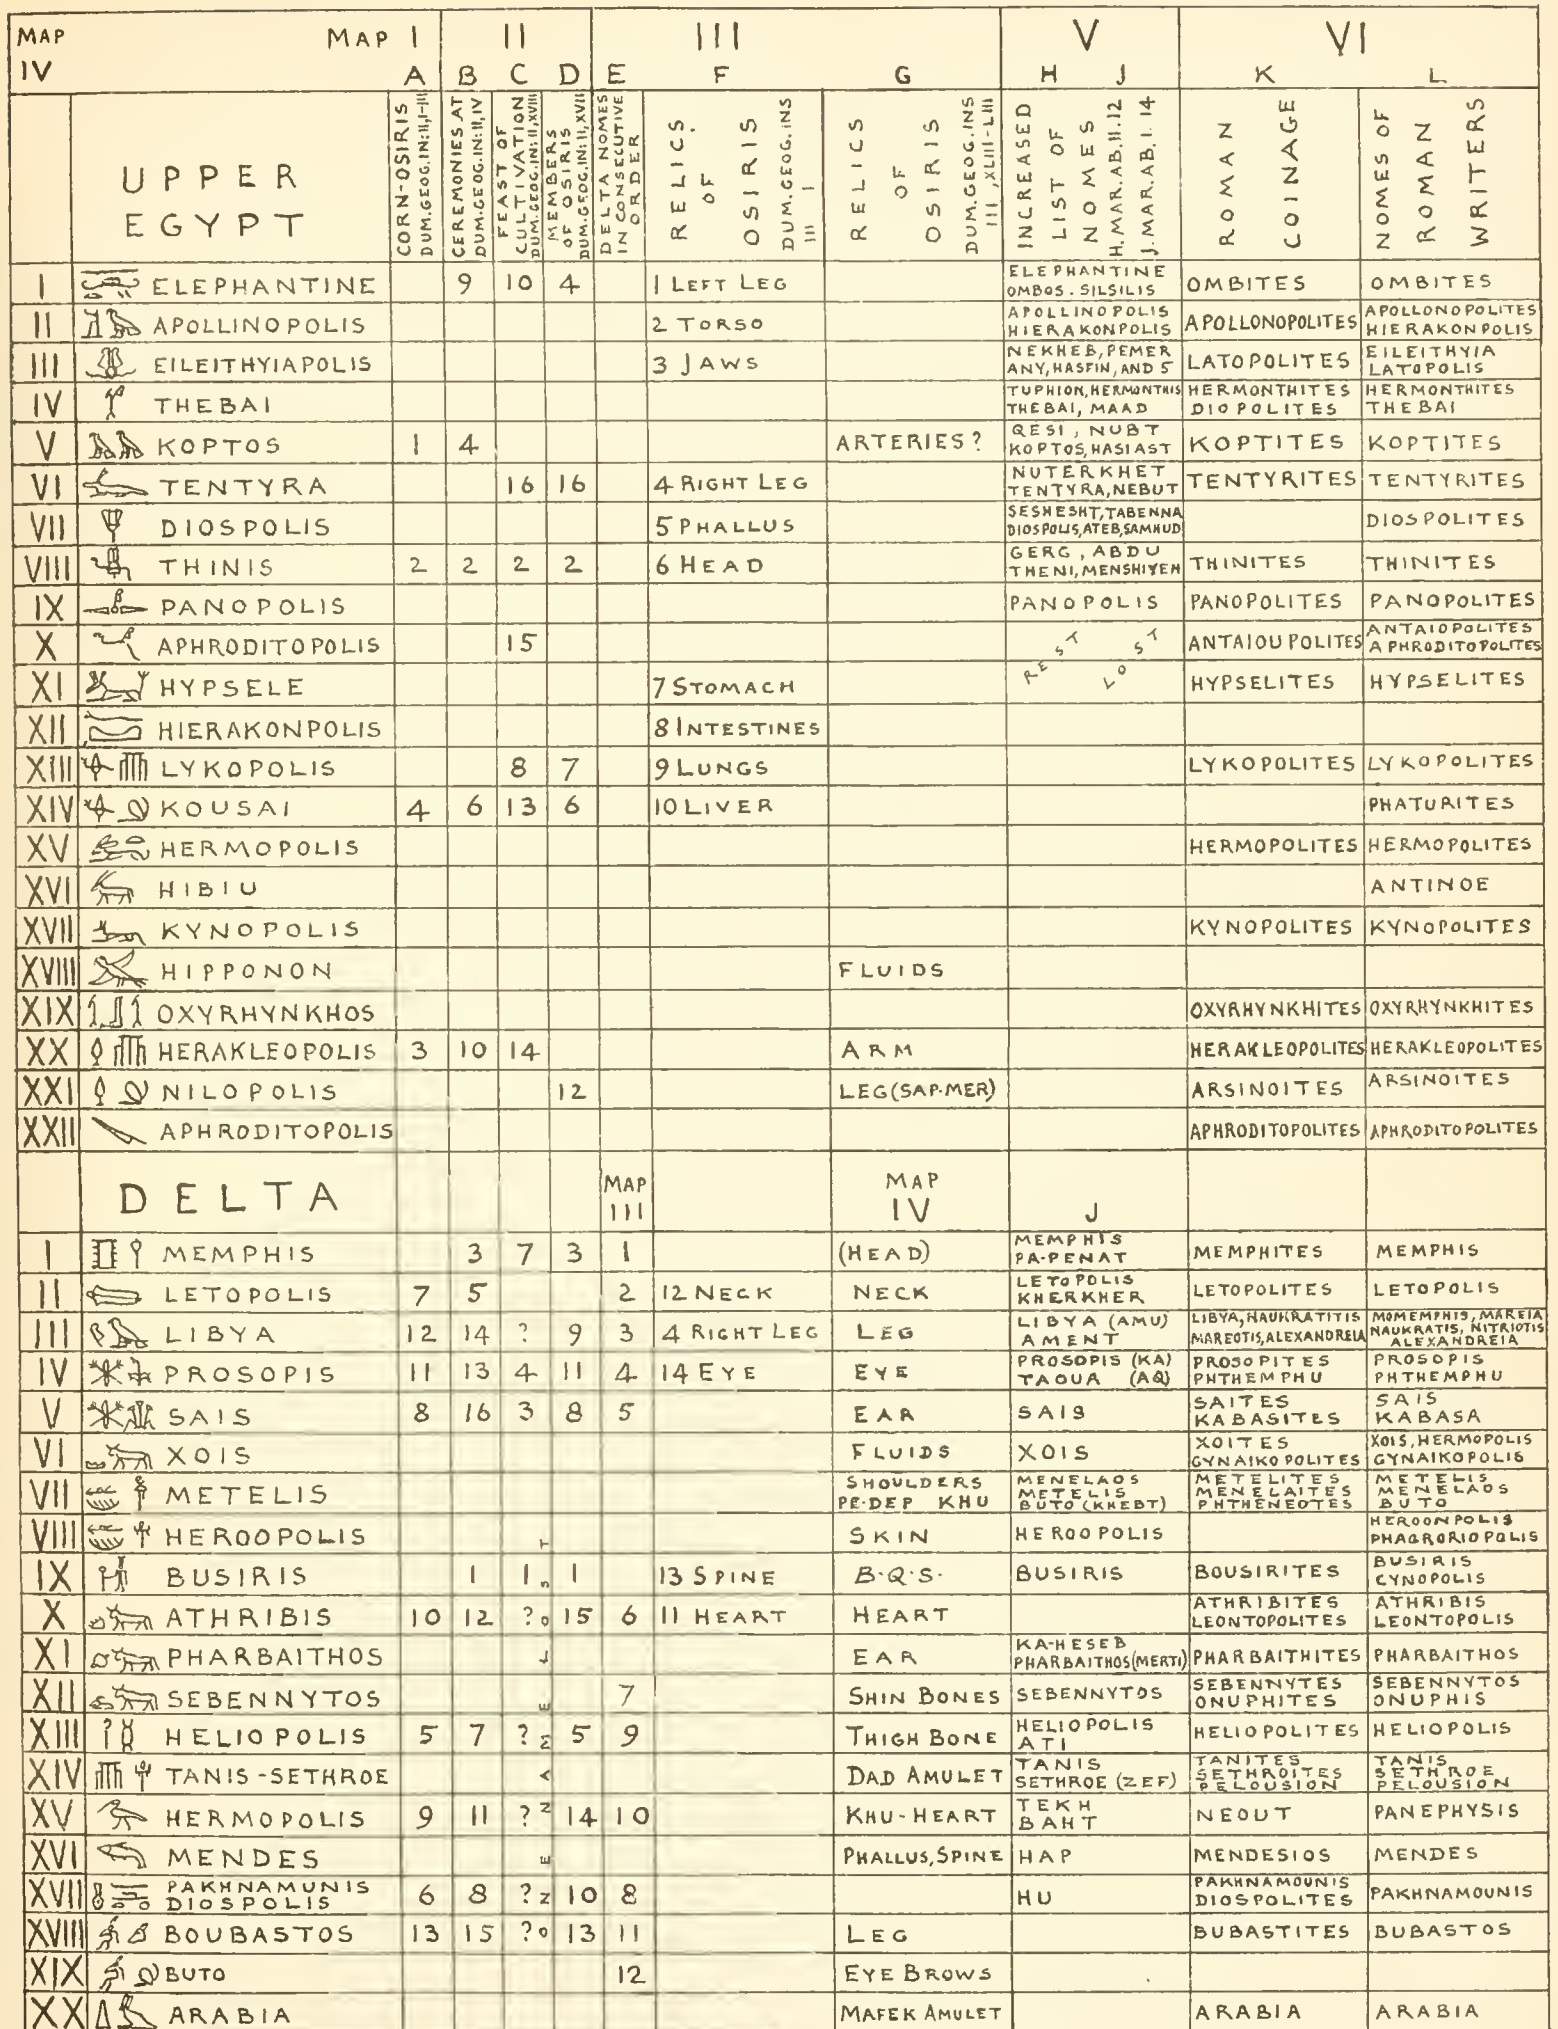 MAP MAP I II III V VI
IV A B C D E F G H J K L
UPPER EGYPT
CORN-OSIRIS DUM.GEOG.IN:II,I-III
CEREMONIES AT DUM.GEOG.IN:II,IV
FEAST OF CULTIVATION DUM.GEOG.IN:II,XVIII
MEMBERS OF OSIRIS DUM.GEOG.IN:II,XVII
DELTA NOMES IN CONSECUTIVE ORDER
RELICS OF OSIRIS DUM.GEOG.INS III I
RELICS OF OSIRIS DUM.GEOG.INS III,XLIII-LIII
INCREASED LIST OF NOMES H.MAR.AB.II.12 J.MAR.AB.I.14
ROMAN COINAGE
NOMES OF ROMAN WRITERS
I ELEPHANTINE 9 10 4 1 LEFT LEG ELEPHANTINE OMBOS. SILSILIS OMBITES OMBITES
II APOLLINOPOLIS 2 TORSO APOLLINOPOLIS HIERAKONPOLIS APOLLONOPOLITES APOLLONOPOLITES HIERAKONPOLIS
III EILEITHYIAPOLIS 3 JAWS NEKHEB, PEMER ANY, HASFIN, AND 5 LATOPOLITES EILEITHYIA LATOPOLIS
IV THEBAI TUPHION, HERMONTHIS THEBAI, MAAD HERMONTHITES DIOPOLITES HERMONTHITES THEBAI
V KOPTOS 1 4 ARTERIES? QESI, NUBT KOPTOS, HASIAST KOPTITES KOPTITES
VI TENTYRA 16 16 4 RIGHT LEG NUTERKHET TENTYRA, NEBUT TENTYRITES TENTYRITES
VII DIOSPOLIS 5 PHALLUS SESHESHT, TABENNA DIOSPOLIS, ATEB, SAMHUD DIOSPOLITES
VIII THINIS 2 2 2 2 6 HEAD GERG, ABDU THENI, MENSHIYEH THINITES THINITES
IX PANOPOLIS PANOPOLIS PANOPOLITES PANOPOLITES
X APHRODITOPOLIS 15 REST LOST ANTAIOUPOLITES ANTAIOPOLITES APHRODITOPOLITES
XI HYPSELE 7 STOMACH HYPSELITES HYPSELITES
XII HIERAKONPOLIS 8 INTESTINES
XIII LYKOPOLIS 8 7 9 LUNGS LYKOPOLITES LYKOPOLITES
XIV KOUSAI 4 6 13 6 10 LIVER PHATURITES
XV HERMOPOLIS HERMOPOLITES HERMOPOLITES
XVI HIBIU ANTINOE
XVII KYNOPOLIS KYNOPOLITES KYNOPOLITES
XVIII HIPPONON FLUIDS
XIX OXYRHYNKHOS OXYRHYNKHITES OXYRHYNKHITES
XX HERAKLEOPOLIS 3 10 14 ARM HERAKLEOPOLITES HERAKLEOPOLITES
XXI NILOPOLIS 12 LEG (SAP-MER) ARSINOITES ARSINOITES
XXII APHRODITOPOLIS APHRODITOPOLITES APHRODITOPOLITES
DELTA MAP III MAP IV J
I MEMPHIS 3 7 3 1 (HEAD) MEMPHIS PA-PENAT MEMPHITES MEMPHIS
II LETOPOLIS 7 5 2 12 NECK NECK LETOPOLIS KHERKHER LETOPOLITES LETOPOLIS
III LIBYA 12 14 ? 9 3 4 RIGHT LEG LEG LIBYA (AMU) AMENT LIBYA, NAUKRATITIS MAREOTIS, ALEXANDREIA MOMEMPHIS, MAREIA NAUKRATIS, NITRIOTIS ALEXANDREIA
IV PROSOPIS 11 13 4 11 4 14 EYE EYE PROSOPIS (KA) TAOUA (AQ) PROSOPITES PHTHEMPHU PROSOPIS PHTHEMPHU
V SAIS 8 16 3 8 5 EAR SAIS SAITES KABASITES SAIS KABASA
VI XOIS FLUIDS XOIS XOITES GYNAIKOPOLITES XOIS, HERMOPOLIS GYNAIKOPOLIS
VII METELIS SHOULDERS PE-DEP KHU MENELAOS METELIS BUTO (KHEBT) METELITES MENELAITES PHTHENEOTES METELIS MENELAOS BUTO
VIII HEROOPOLIS SKIN HEROOPOLIS HEROONPOLIS PHAGRORIOPOLIS
IX BUSIRIS 1 1 1 13 SPINE B.Q.S. BUSIRIS BOUSIRITES BUSIRIS CYNOPOLIS
X ATHRIBIS 10 12 ? 15 6 11 HEART HEART ATHRIBITES LEONTOPOLITES ATHRIBIS LEONTOPOLIS
XI PHARBAITHOS EAR KA-HESEB PHARBAITHOS (MERTI) PHARBAITHITES PHARBAITHOS
XII SEBENNYTOS 7 SHIN BONES SEBENNYTOS SEBENNYTES ONUPHITES SEBENNYTOS ONUPHIS
XIII HELIOPOLIS 5 7 ? 5 9 THIGH BONE HELIOPOLIS ATI HELIOPOLITES HELIOPOLIS
XIV TANIS-SETHROE DAD AMULET TANIS SETHROE (ZEF) TANITES SETHROITES PELOUSION TANIS SETHROE PELOUSION
XV HERMOPOLIS 9 11 ? 14 10 KHU-HEART TEKH BAHT NEOUT PANEPHYSIS
XVI MENDES PHALLUS, SPINE HAP MENDESIOS MENDES
XVII PAKHNAMUNIS DIOSPOLIS 6 8 ? 10 8 HU PAKHNAMOUNIS DIOSPOLITES PAKHNAMOUNIS
XVIII BOUBASTOS 13 15 ? 13 11 LEG BUBASTITES BUBASTOS
XIX BUTO 12 EYE BROWS
XX ARABIA MAFEK AMULET ARABIA ARABIA
NO ZE NAMES LOST